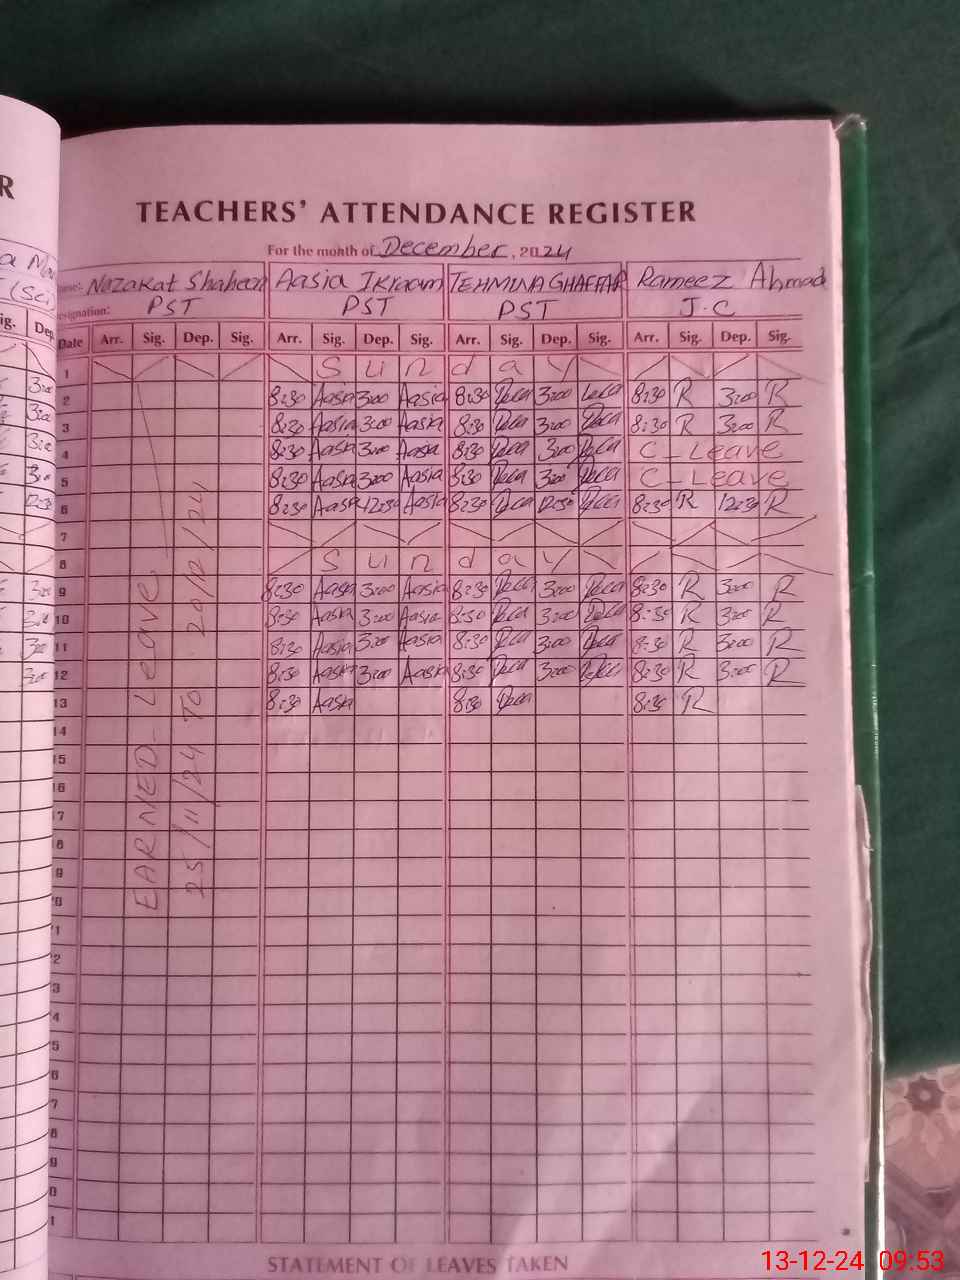 R
TEACHERS' ATTENDANCE REGISTER
For the month of December, 2024
Name: Nazakat Shaheen Aasia Ikraam TEHMINA GHAFFAR Rameez Ahmad
(Sci)
Designation: PST PST PST J.C
Sig. Dep. Date Arr. Sig. Dep. Sig. Arr. Sig. Dep. Sig. Arr. Sig. Dep. Sig. Arr. Sig. Dep. Sig.
1 Sunday
3:00 2 8:30 Aasia 3:00 Aasia 8:30 3:00 8:30 R 3:00 R
3:00 3 8:30 Aasia 3:00 Aasia 8:30 3:00 8:30 R 3:00 R
3:00 4 8:30 Aasia 3:00 Aasia 8:30 3:00 C-Leave
3:00 5 8:30 Aasia 3:00 Aasia 8:30 3:00 C-Leave
12:30 6 8:30 Aasia 12:30 Aasia 8:30 12:30 8:30 R 12:30 R
7
8 Sunday
3:00 9 8:30 Aasia 3:00 Aasia 8:30 3:00 8:30 R 3:00 R
3:00 10 8:30 Aasia 3:00 Aasia 8:30 3:00 8:30 R 3:00 R
3:00 11 8:30 Aasia 3:00 Aasia 8:30 3:00 8:30 R 3:00 R
3:00 12 8:30 Aasia 3:00 Aasia 8:30 3:00 8:30 R 3:00 R
13 8:30 Aasia 8:30 8:30 R
EARNED Leave
25/11/24 To 20/12/24
14
15
16
17
8
9
0
1
2
3
4
5
6
7
8
9
0
1
STATEMENT OF LEAVES TAKEN
13-12-24 09:53